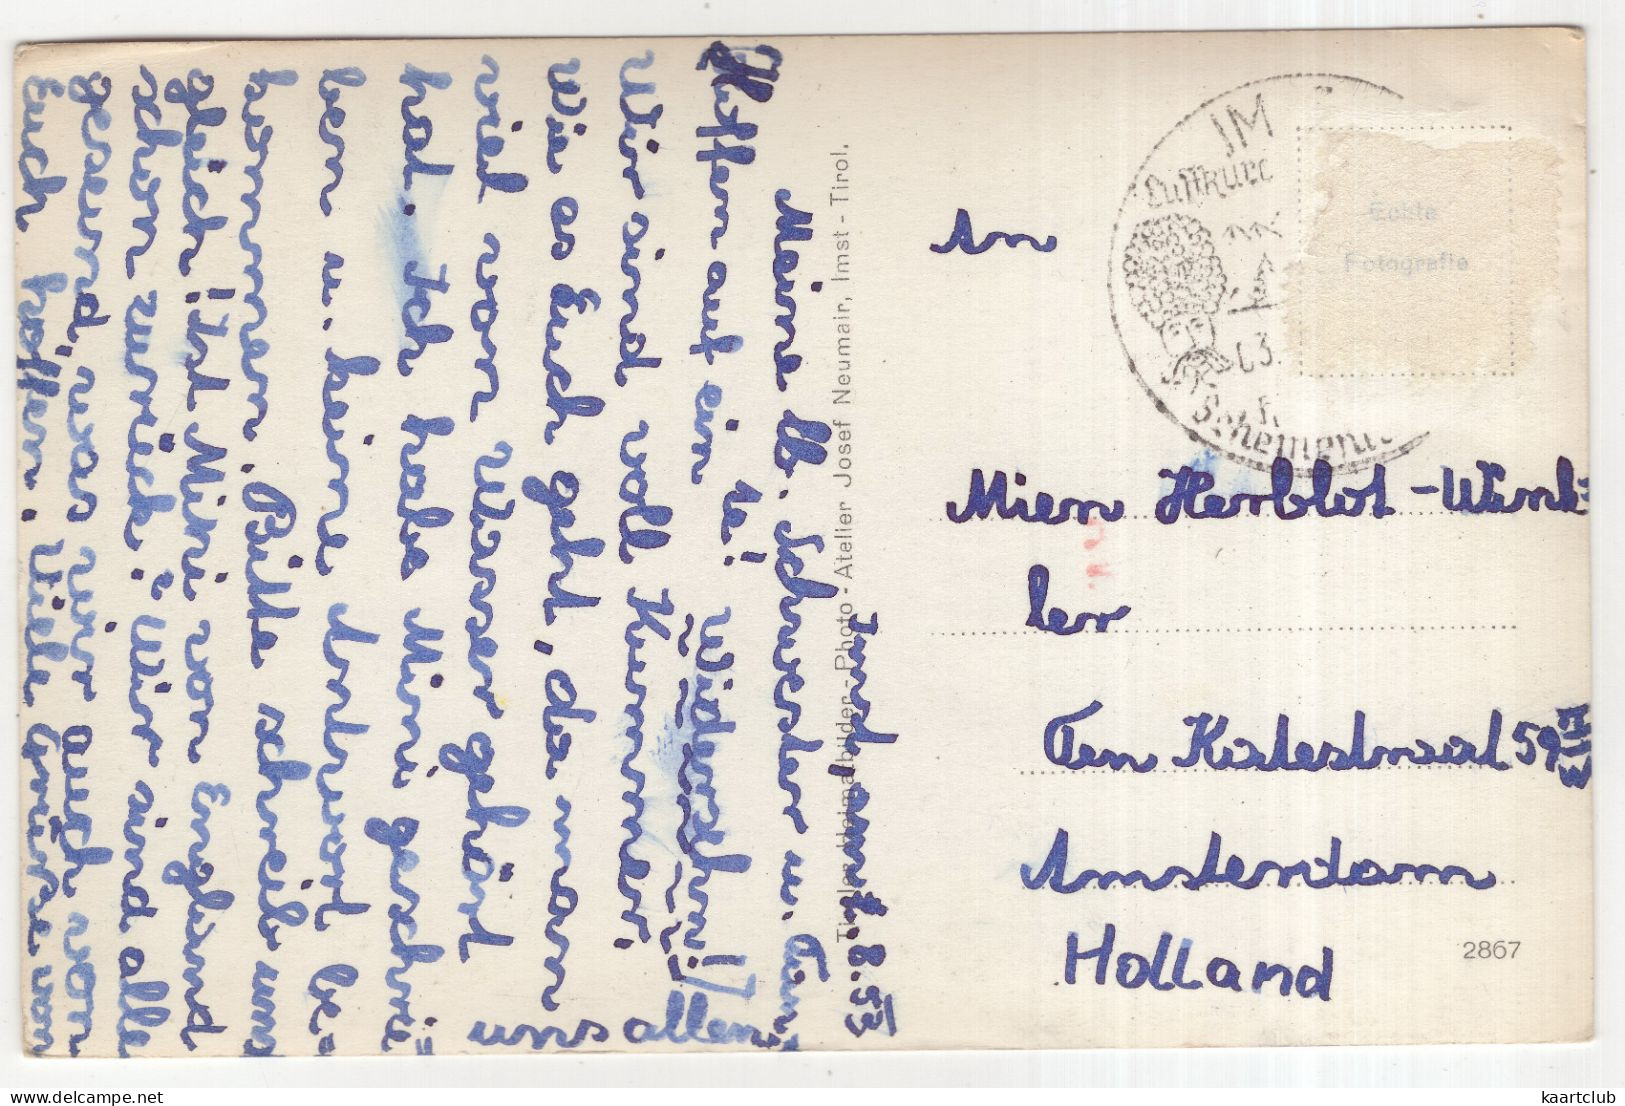 Imst, am 1. 8. 53
Meine lb. Schwester u. Fam.
Hoffen auf ein
Widersehn!
Wir sind voll Kummer.
Wie es Euch geht, da man
viel von Wasser gehört
hat. Ich habe Mini geschrie
ben u. keine Antwort be-
kommen. Bitte schreib uns
gleich! Ist Mini von England
schon zurück? Wir sind alle
gesund, was wir auch von
Euch hoffen. Viele Grüße von
uns allen
Tiroler Heimatbilder - Photo - Atelier Josef Neumair, Imst - Tirol.
IM
Luftkuro
Schemenl
Echte
Fotografie
An
Mien Herblot - Wink=
ler
Amsterdam
Holland
2867
kaartclub